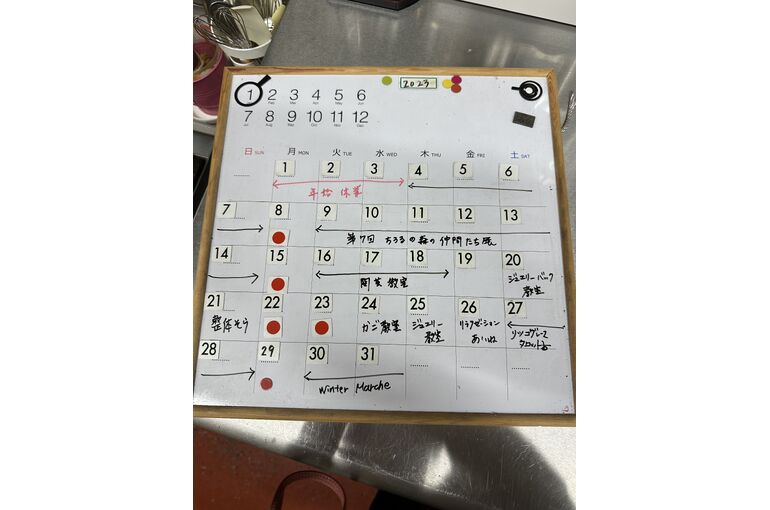 2023
1 2 3 4 5 6
Feb Mar Apr May Jun
7 8 9 10 11 12
Jul Aug Sep Oct Nov Dec
日 SUN 月 MON 火 TUE 水 WED 木 THU 金 FRI 土 SAT
1 2 3 4 5 6
年始休業
7 8 9 10 11 12 13
第7回 ちろるの森の仲間たち展
14 15 16 17 18 19 20
陶芸教室
ジュエリーバーク
教室
21 22 23 24 25 26 27
整体そう
かご教室
ジュエリー
教室
リラクゼーション
あいね
リツコグレース
タロット占
28 29 30 31
Winter Marche